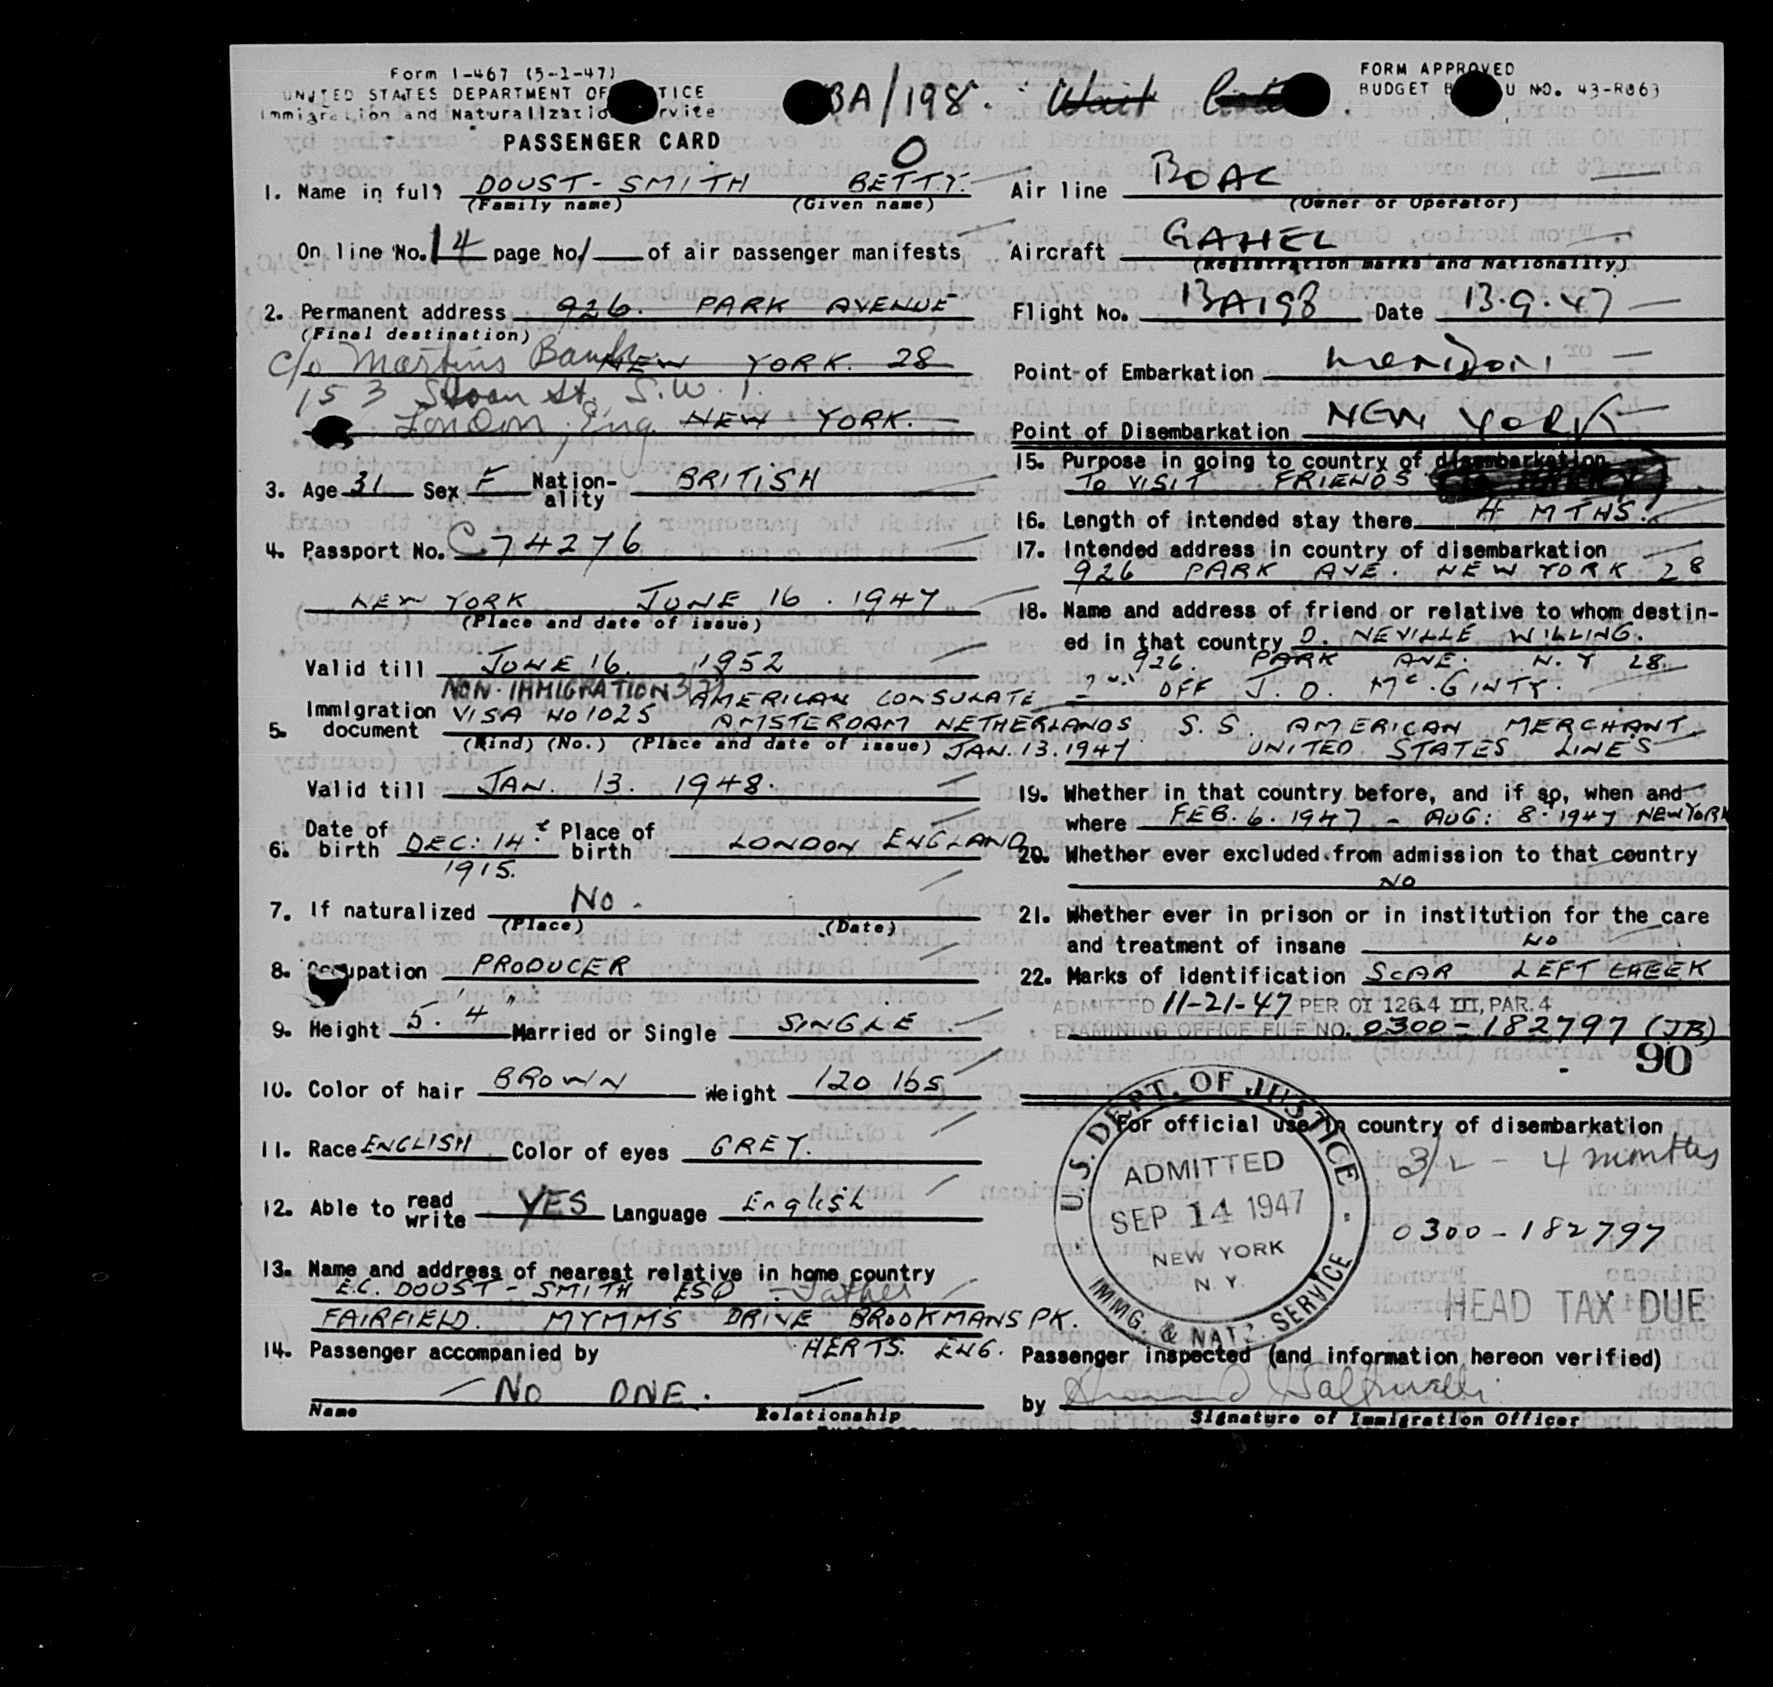 Form I-467 (5-1-47)
UNITED STATES DEPARTMENT OF TICE
Immigration and Naturalizatio rvice
PASSENGER CARD
BA/198. Wait
FORM APPROVED
BUDGET B U NO. 43-R063
O
1. Name in full DOUST-SMITH BETTY.
(Family name) (Given name)
On line No. 14 page No. 1 of air passenger manifests
2. Permanent address 926. PARK AVENUE
(Final destination)
NEW YORK. 28
c/o Martins Bank
153 Sloan St, S.W.1.
London, Eng. NEW YORK.
3. Age 31 Sex F Nation-ality BRITISH
4. Passport No. C74276
NEW YORK JUNE 16. 1947
(Place and date of issue)
Valid till JUNE 16. 1952
NON-IMMIGRATION AMERICAN CONSULATE
5. Immigration document VISA NO 1025 AMSTERDAM NETHERLANDS
(Kind) (No.) (Place and date of issue) JAN. 13. 1947
Valid till JAN. 13. 1948.
6. Date of birth DEC: 14 Place of birth LONDON ENGLAND
1915.
7. If naturalized No.
(Place) (Date)
8. Occupation PRODUCER
9. Height 5' 4" Married or Single SINGLE.
10. Color of hair BROWN Weight 120 lbs
11. Race ENGLISH Color of eyes GREY.
12. Able to read write YES Language English
13. Name and address of nearest relative in home country
E.C. DOUST-SMITH ESQ - Father
FAIRFIELD. MYMMS DRIVE BROOKMANS PK.
HERTS. ENG.
14. Passenger accompanied by
NO ONE.
Name Relationship
Air line BOAC
(Owner or Operator)
Aircraft GAHEL
(Registration marks and Nationality)
Flight No. BA198 Date 13.9.47
Point of Embarkation London
Point of Disembarkation NEW YORK
15. Purpose in going to country of disembarkation
TO VISIT FRIENDS
16. Length of intended stay there 4 MTHS.
17. Intended address in country of disembarkation
926 PARK AVE. NEW YORK 28
18. Name and address of friend or relative to whom destin-
ed in that country D. NEVILLE WILLING.
926. PARK AVE. N.Y 28.
2nd OFF J. D. McGINTY.
S.S. AMERICAN MERCHANT.
UNITED STATES LINES
19. Whether in that country before, and if so, when and
where FEB. 6. 1947 - AUG: 8. 1947 NEW YORK
20. Whether ever excluded from admission to that country
NO
21. Whether ever in prison or in institution for the care
and treatment of insane NO
22. Marks of identification SCAR LEFT CHEEK
ADMITTED 11-21-47 PER OI 126.4 III, PAR. 4
EXAMINING OFFICE FILE NO. 0300-182797 (JB)
90
For official use in country of disembarkation
3/2 - 4 months
U.S. DEPT. OF JUSTICE
ADMITTED
SEP 14 1947
NEW YORK
N.Y.
IMMG. & NATZ. SERVICE
0300-182797
HEAD TAX DUE
Passenger inspected (and information hereon verified)
by
Signature of Immigration Officer